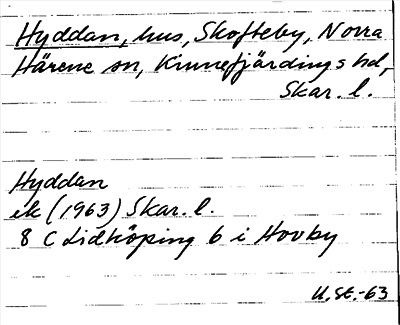 Hyddan, hus, Skofteby, Norra
Härene sn, Kinnefjärdings hd,
Skar. l.
Hyddan
ek (1963) Skar. l.
8 C Lidköping 6 i Hovby
U.St.-63